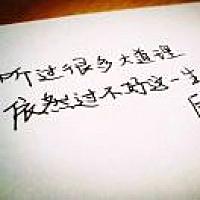 听过很多大道理
依然过不好这一生